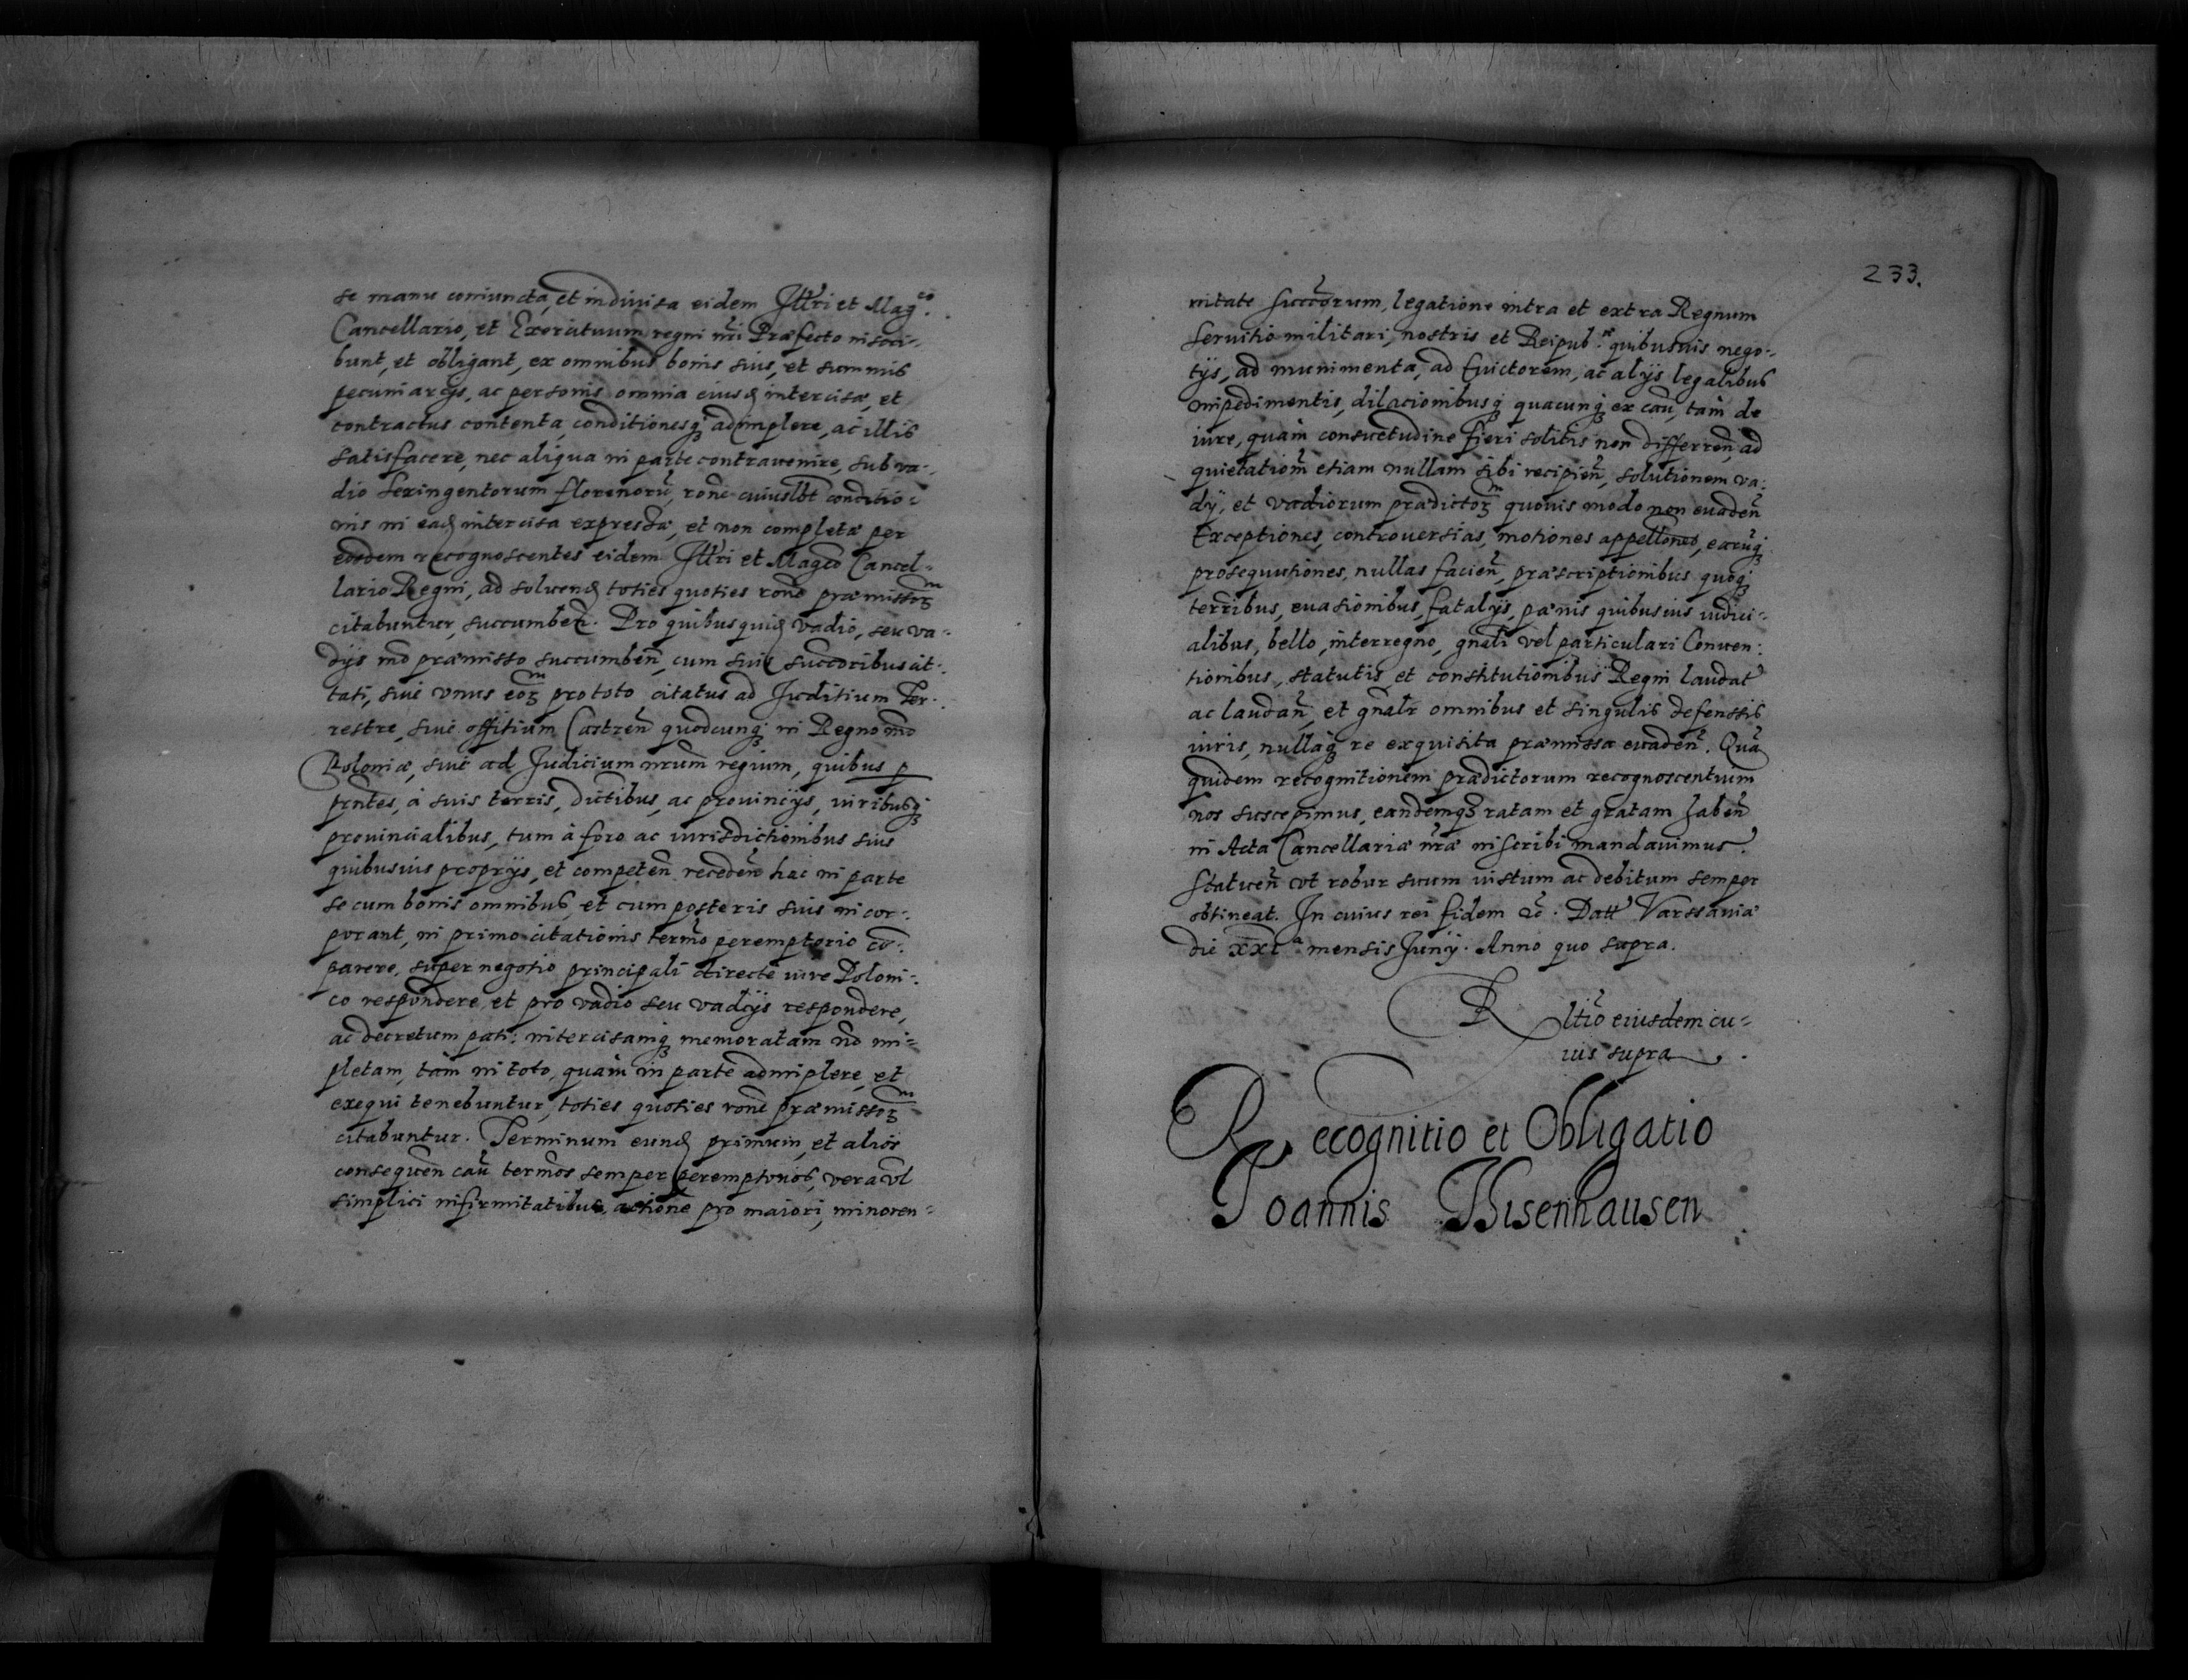 se manu coniuncta, et in diuisa eidem Illri et Mag.co
Cancellario, et Exercituum regni nri Præfecto inscri-
bunt, et obligant, ex omnibus bonis suis, et summis
pecuniarijs, ac personis omnia eiusd intercisæ, et
contractus contenta, conditionesq adimplere, ac illis
satisfacere, nec aliqua in parte contrauenire, sub va-
dio sexingentorum florenorũ, rone cuiuslbt conditio-
nis in ead intercisa expressæ, et non completæ per
eosdem recognoscentes eidem Illri et Mag̃co Cancel-
lario Regni, ad soluend toties quoties rone præmissor̃m
citabuntur, succumben. Pro quibusquid vadio, seu va-
dijs mõ præmisso succumben̄, cum suis succoribus cit-
tati, siue vnus eorm pro toto citatus ad Juditium Ter-
restre, siue offitium Castren̄ quodcunq in Regno nro
Poloniæ, siue ad Judicium nrum regium, quibus p
pntes, à suis terris, dictibus, ac prouincijs, iuribusq
prouincialibus, tum à foro ac iurisdictionibus suis
quibusuis proprijs, et competen̄ receden̄ hac in parte
se cum bonis omnibus, et cum posteris suis incor-
porant, in primo citationis termo peremptorio cõ-
parere, super negotio principali directe iure Poloni-
co respondere, et pro vadio seu vadijs respondere,
ac decretum pati: intercisamq memoratam nõ im-
pletam, tàm in toto, quàm in parte adimplere, et
exequi tenebuntur, toties quoties rone præmissorm
citabuntur. Terminum eund primum, et alios
consequen̄ cau termos semper peremptorios, vera vl
simplici infirmitatibus, actione pro maiori, minoren-
233.
nitate succorum, legatione intra et extra Regnum
seruitio militari, nostris et Reipub.æ quibusuis nego-
tijs, ad munimenta, ad Euictorem, ac alijs legalibus
impedimentis, dilacionibusq quacunq ex cau, tam de
iure, quàm consuetudine fieri solitis non differren̄, ad
quietatiom̄ etiam nullam sibi recipien̄, solutionem va-
dij, et vadiorum prædictorm quouis modo non euaden̄
Exceptiones, controuersias, motiones appellones, earũq
prosequutiones, nullas facien̄, præscriptionibus quoq
terribus, euasionibus, fatalijs, pænis quibusuis iudici-
alibus, bello, interregno, gnali vel particulari Conuen-
tionibus, statutis, et constitutionibus Regni laudat
ac laudan̄, et gnalr omnibus et singulis defenssis
iuris, nullaq re exquisita præmissa euaden̄. Quã
quidem recognitionem prædictorum recognoscentium
nos suscepimus, eandemq ratam et gratam haben̄
in Acta Cancellariæ nræ inscribi mandauimus.
Statuen̄ vt robur suum iustum ac debitum semper
obtineat. In cuius rei fidem &c. Datt Varssauiæ
die xxia mensis Junij. Anno quo supra.
Rltio eiusdem cu-
ius supra.
Recognitio et Obligatio
Joannis Thisenhausen